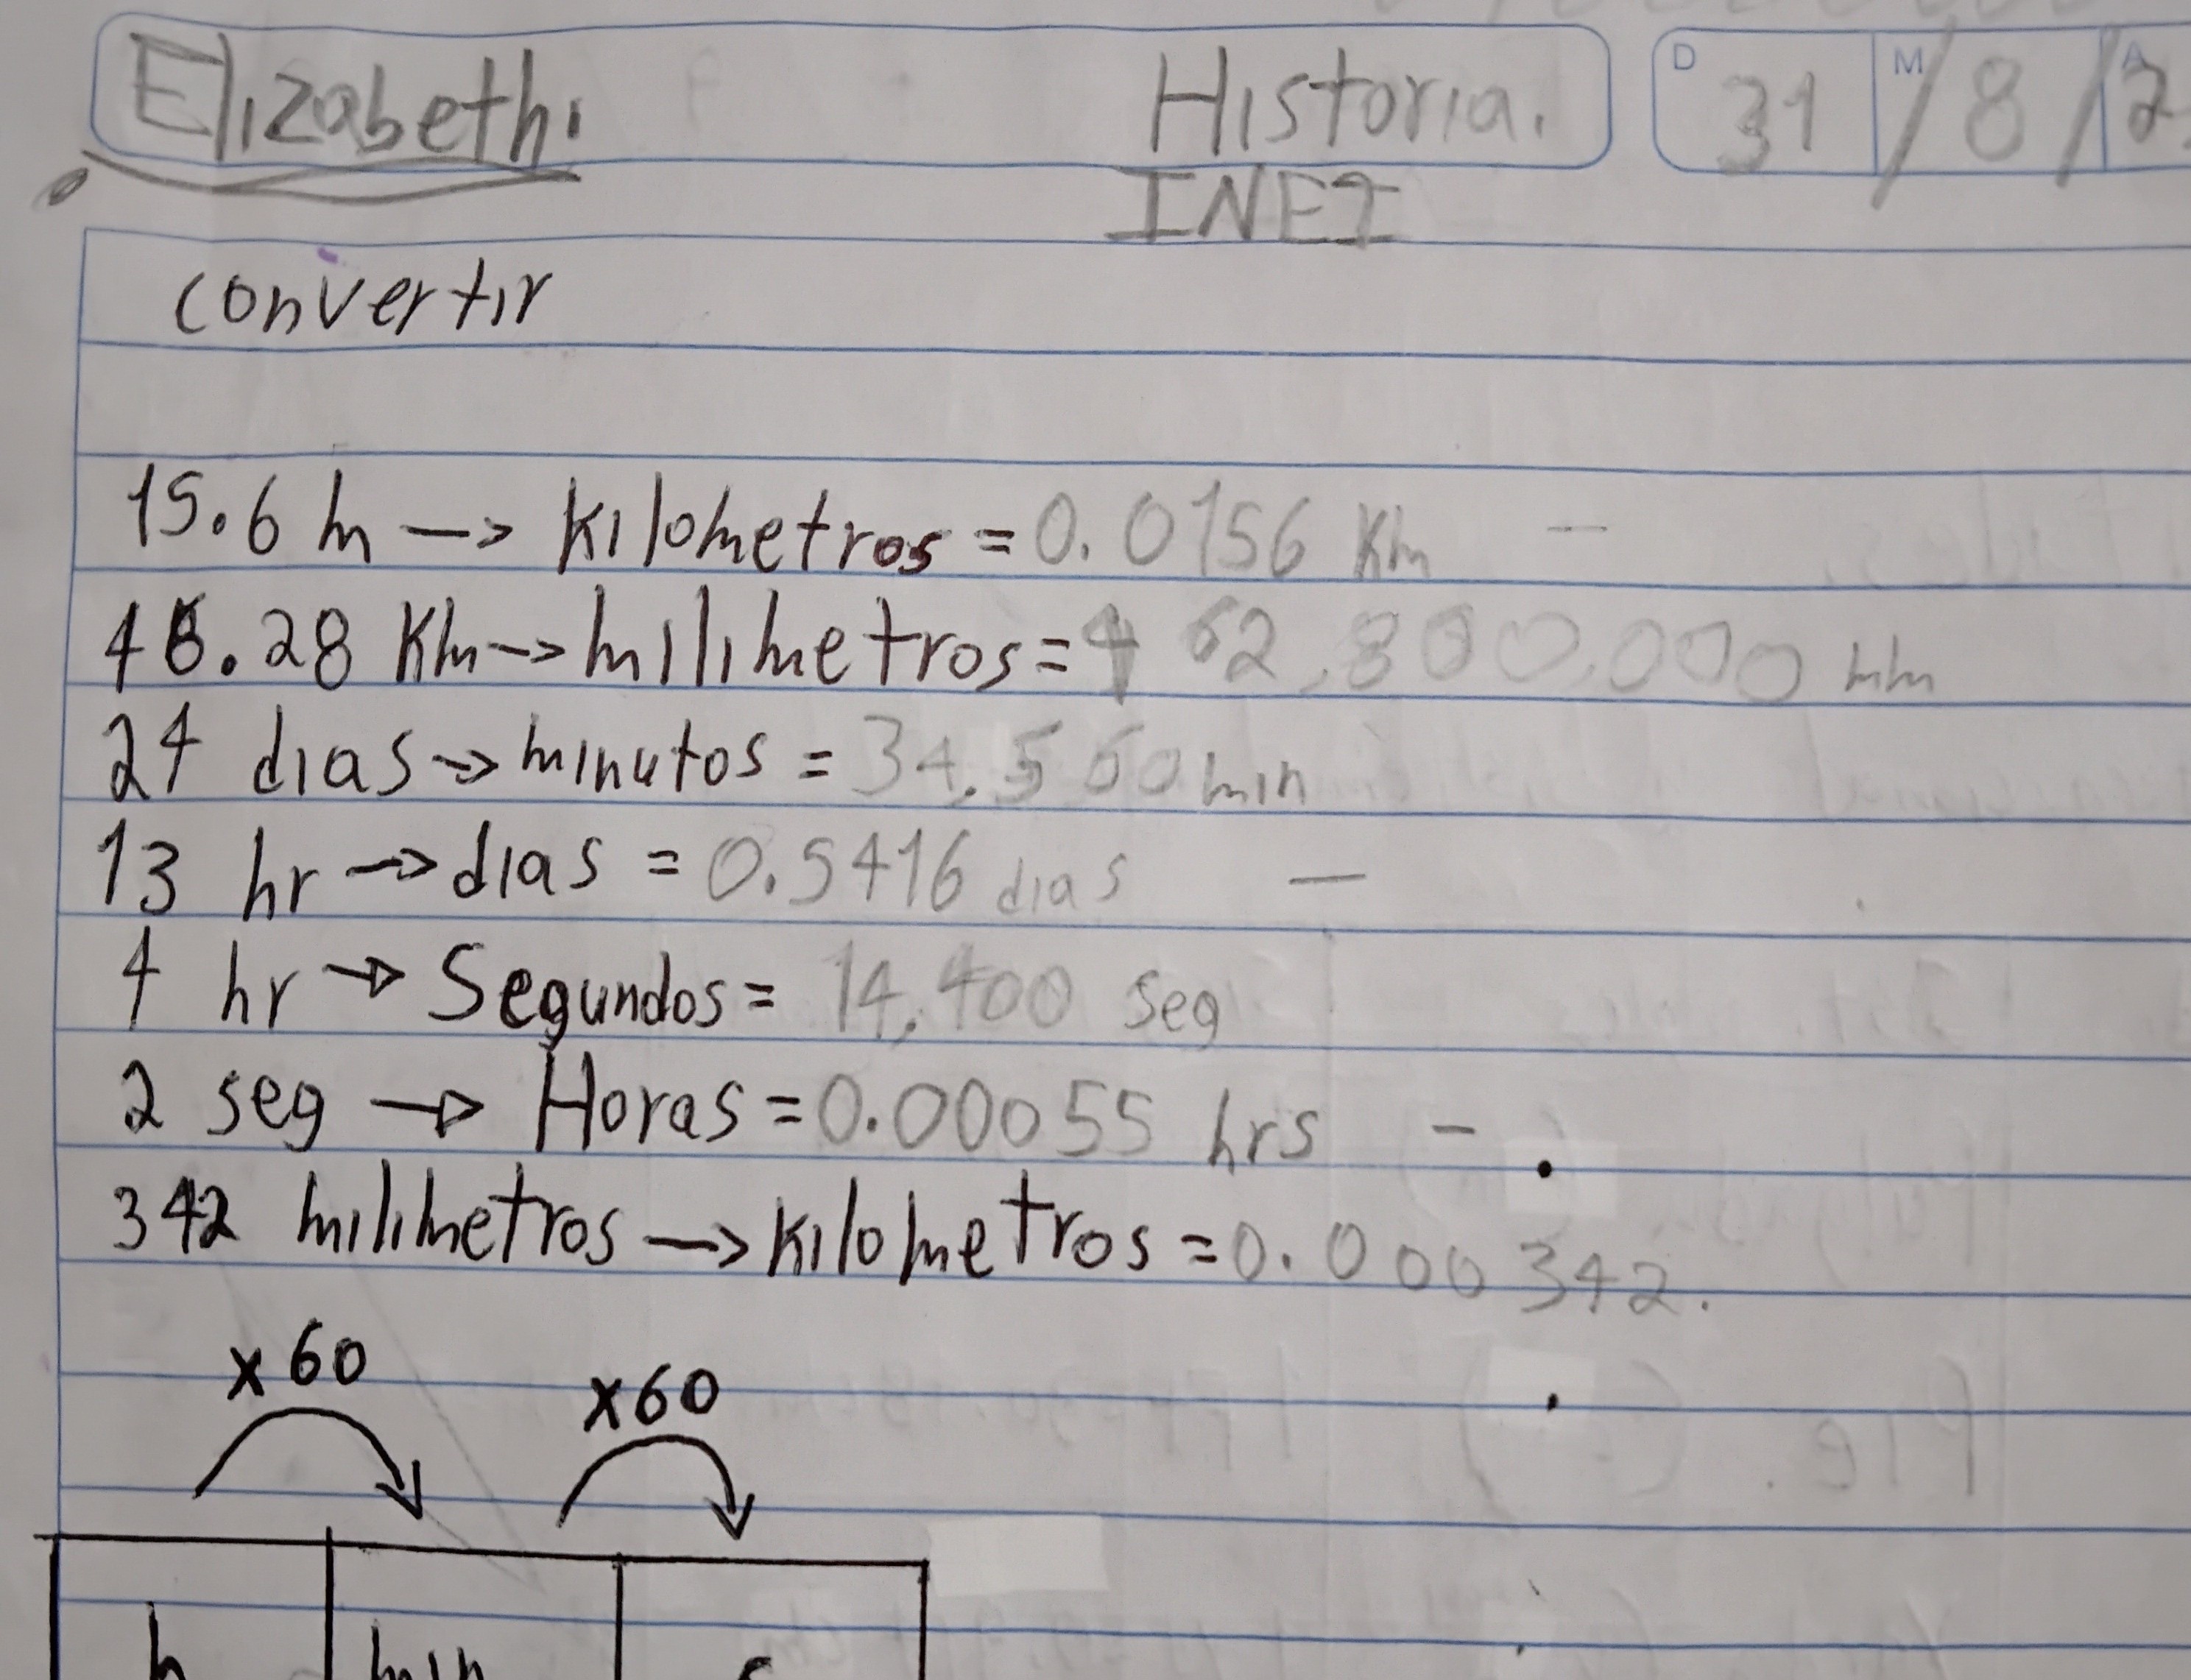 Elizabeth. Historia. D 31 M / 8 / A 2
INEI
convertir
15.6 m → kilometros = 0.0156 Km –
46.28 Km → milimetros = 462,800,000 mm
24 dias → minutos = 34,560 min
13 hr → dias = 0.5416 dias –
4 hr → Segundos = 14,400 seg
2 seg → Horas = 0.00055 hrs –
342 milimetros → kilometros = 0.000342.
x60 x60
h min s